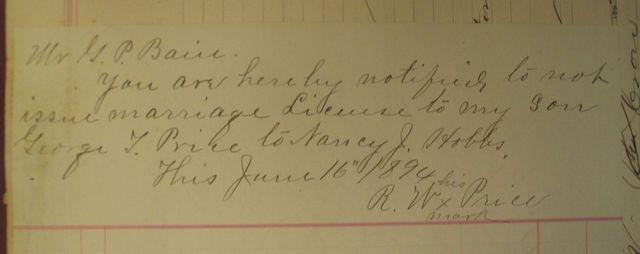 Mr G. P. Bain.
You are hereby notified, to not
issue marriage License to my Son
George T. Price to Nancy J. Hobbs,
This June 16" 1894
his
R. W x Price
mark